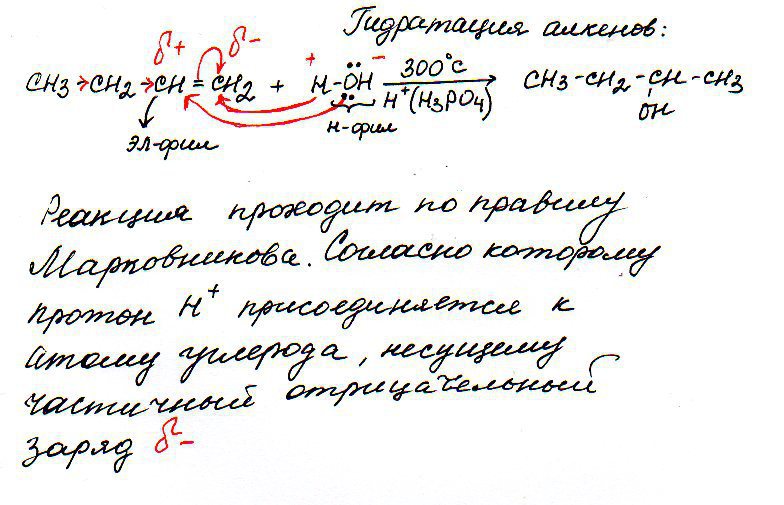 Гидратация алкенов:
δ+ δ-
CH3→CH2→CH=CH2 + H-ÖH 300°C CH3-CH2-CH-CH3
+ -
H+(H3PO4) OH
эл-фил н-фил
Реакция проходит по правилу
Марковникова. Согласно которому
протон H+ присоединяется к
атому углерода, несущему
частичный отрицательный
заряд δ-